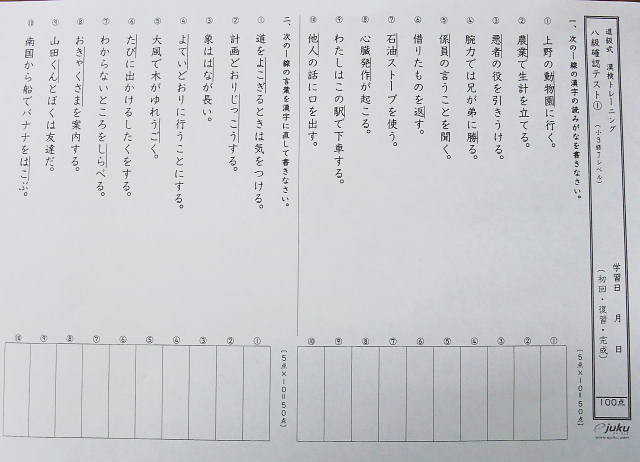 進級式 漢検トレーニング
八級確認テスト① (小3終了レベル)
学習日 月 日
(初回・復習・完成)
100点
ejuku
www.ejuku.com
一、次の―線の漢字の読みがなを書きなさい。
① 上野の動物園に行く。
② 農業で生計を立てる。
③ 悪者の役を引きうける。
④ 腕力では兄が弟に勝る。
⑤ 係員の言うことを聞く。
⑥ 借りたものを返す。
⑦ 石油ストーブを使う。
⑧ 心臓発作が起こる。
⑨ わたしはこの駅で下車する。
⑩ 他人の話に口を出す。
(5点×10=50点)
① ② ③ ④ ⑤ ⑥ ⑦ ⑧ ⑨ ⑩
二、次の―線の言葉を漢字に直して書きなさい。
① 道をよこぎるときは気をつける。
② 計画どおりじっこうする。
③ 象ははなが長い。
④ よていどおりに行うことにする。
⑤ 大風で木がゆれうごく。
⑥ たびに出かけるしたくをする。
⑦ わからないところをしらべる。
⑧ おきゃくさまを案内する。
⑨ 山田くんとぼくは友達だ。
⑩ 南国から船でバナナをはこぶ。
(5点×10=50点)
① ② ③ ④ ⑤ ⑥ ⑦ ⑧ ⑨ ⑩